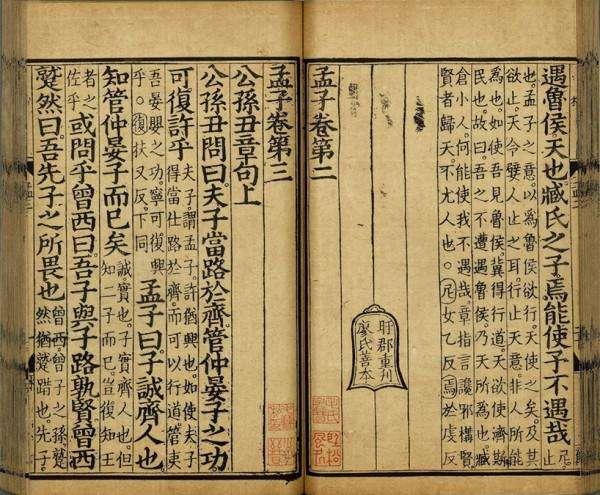 遇魯侯天也臧氏之子焉能使予不遇哉尼止
也孟子之意以為魯侯欲行天使之矣及其
欲止天令嬖人止之耳行止天意非人所能
為也如使吾見魯侯冀得行道天欲使濟斯
民也故曰吾之不遭遇魯侯乃天所為也臧
倉小人何能使我不遇哉章指言讒邪構賢
賢者歸天不尤人也尼女乙反焉於虔反
盱郡重刊
廖氏善本
孟子卷第二
孟子卷第三
公孫丑章句上
公孫丑問曰夫子當路於齊管仲晏子之功
可復許乎夫子謂孟子許猶興也如使夫子得當仕路於齊而可以行道管夷
吾晏嬰之功寧可復興乎復扶又反下同孟子曰子誠齊人也
知管仲晏子而已矣誠實也子實齊人也但知二子而已豈復知王
者之佐乎或問乎曾西曰吾子與子路孰賢曾西
蹵然曰吾先子之所畏也曾西曾子之孫蹵然猶蹵踖也先子